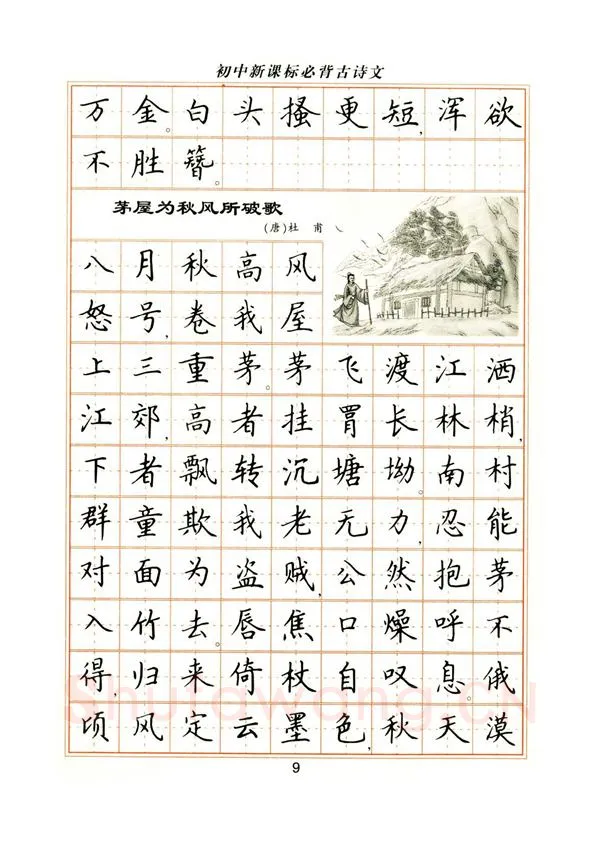 初中新课标必背古诗文
万金。白头搔更短,浑欲
不胜簪。
茅屋为秋风所破歌
(唐)杜 甫
八月秋高风
怒号,卷我屋
上三重茅。茅飞渡江洒
江郊,高者挂罥长林梢,
下者飘转沉塘坳。南村
群童欺我老无力,忍能
对面为盗贼,公然抱茅
入竹去。唇焦口燥呼不
得,归来倚杖自叹息。俄
顷风定云墨色,秋天漠
9
Shufawang.CN